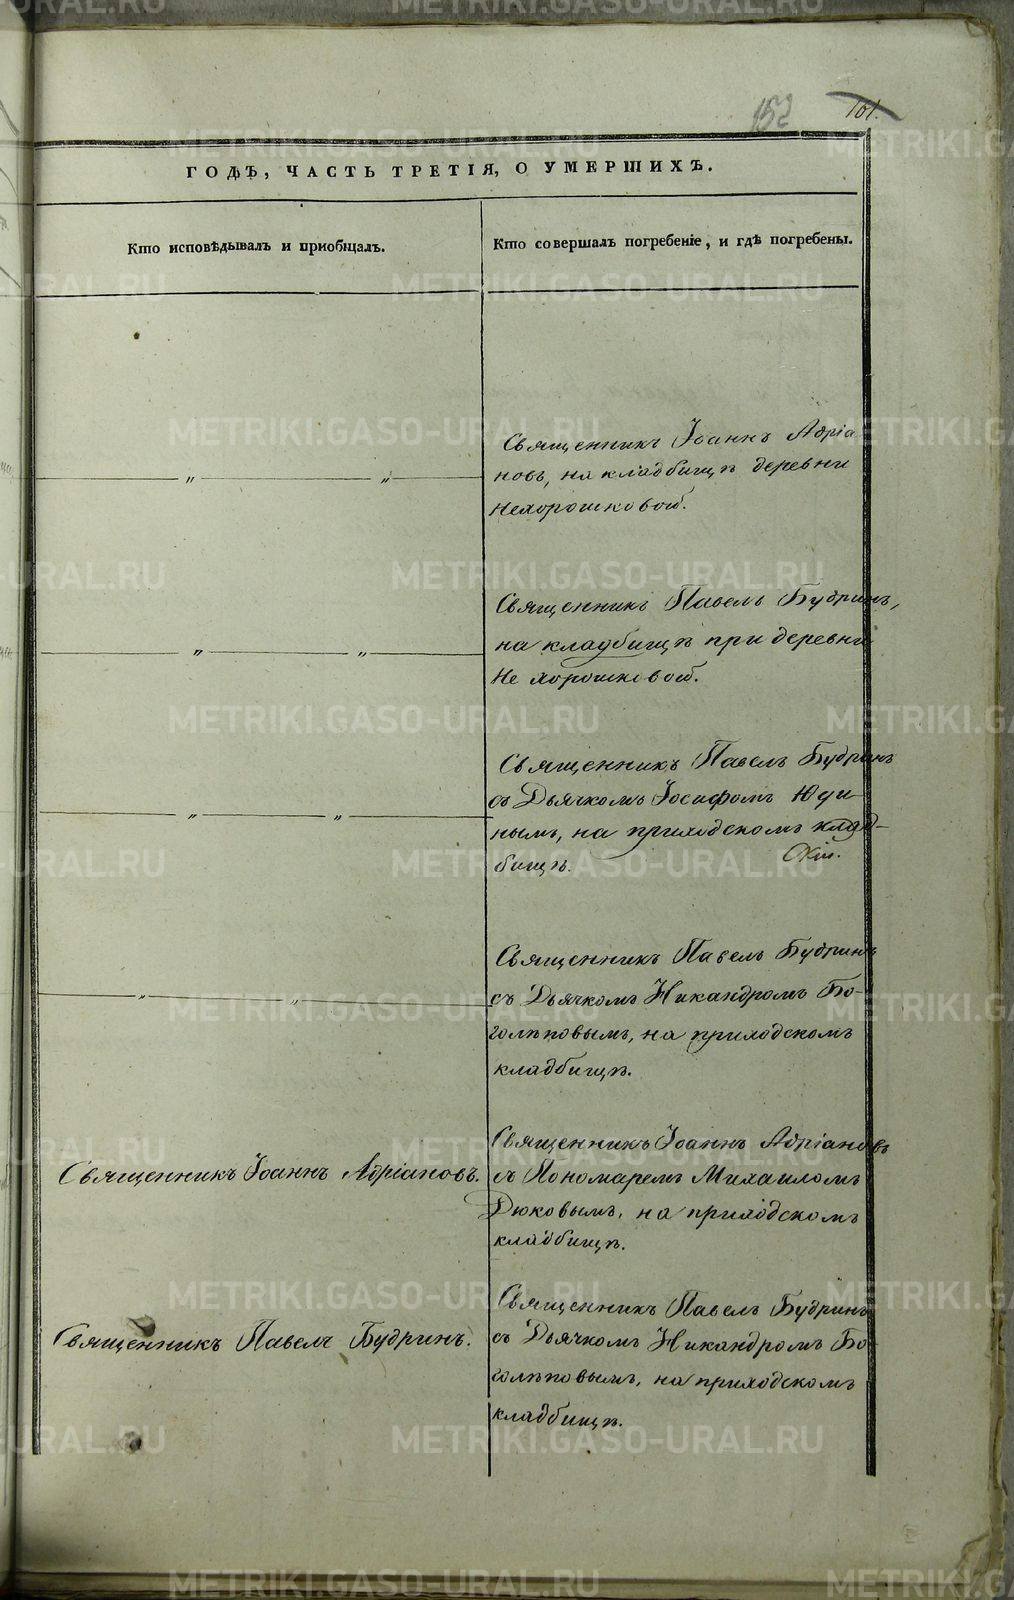 152
101.
ГОДѢ, ЧАСТЬ ТРЕТІЯ, О УМЕРШИХЪ.
Кто исповѣдывалъ и приобщалъ.
Кто совершалъ погребеніе, и гдѣ погребены.
Священникъ Іоаннъ Адріа
новъ, на кладбищѣ деревни
Нехорошковой.
Священникъ Павелъ Будринъ,
на кладбищѣ при деревни
Нехорошковой.
Священникъ Павелъ Будринъ
съ Дьячкомъ Іосифомъ Юди-
нымъ, на приходскомъ клад-
бищѣ.
Священникъ Павелъ Будринъ
съ Дьячкомъ Никандромъ Бо-
голѣповымъ, на приходскомъ
кладбищѣ.
Священникъ Іоаннъ Адріановъ.
Священникъ Іоаннъ Адріановъ
съ Пономаремъ Михаиломъ
Дюковымъ, на приходскомъ
кладбищѣ.
Священникъ Павелъ Будринъ.
Священникъ Павелъ Будринъ
съ Дьячкомъ Никандромъ Бо-
голѣповымъ, на приходскомъ
кладбищѣ.
METRIKI.GASO-URAL.RU